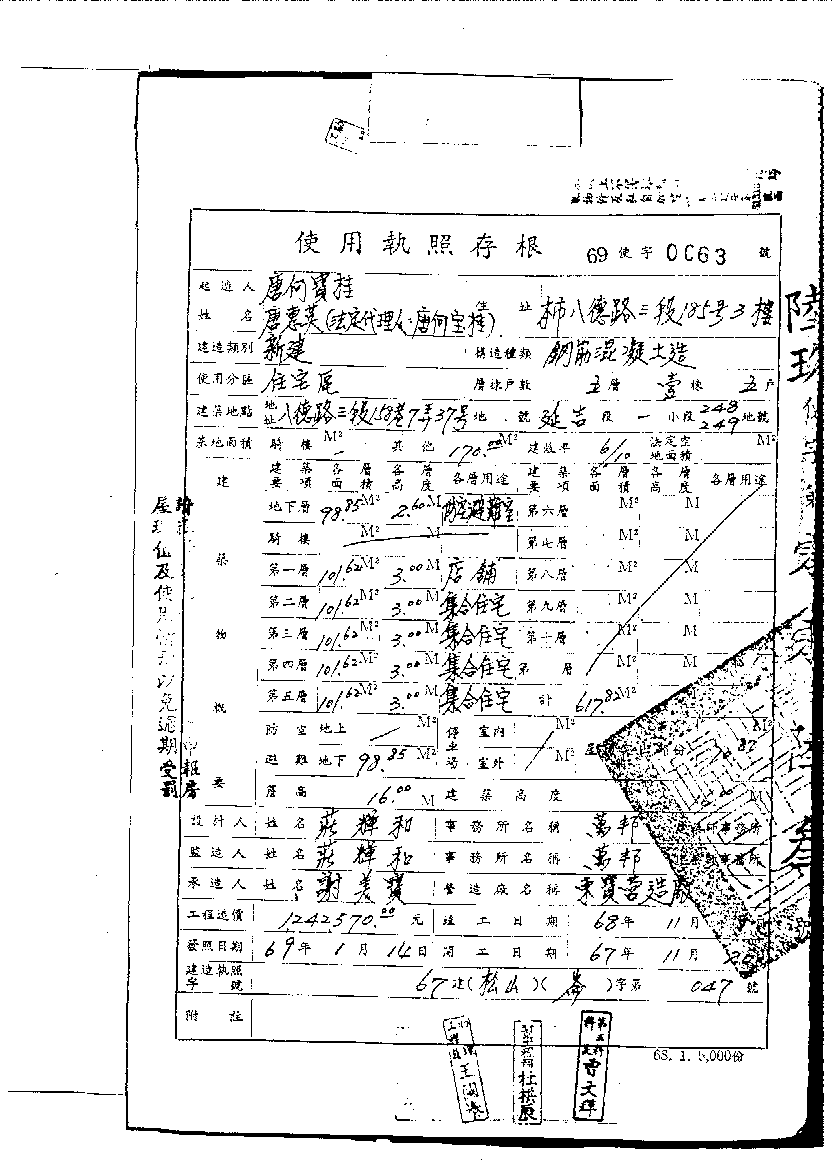 使用執照存根 69使字0063號
起造人 唐何寶桂
姓名 唐惠英(法定代理人:唐何宝桂) 住址 本市八德路三段185号3樓
建造類別 新建 構造種類 鋼筋混凝土造
使用分區 住宅區 層棟戶數 五層 壹棟 五戶
建築地點 地址 八德路三段158巷7弄37号 地號 延吉段一小段248 249地號
基地面積 騎樓 M² 其他 170.00 M² 建蔽率 6/10 法定空地面積 M²
建築要項 各層面積 各層高度 各層用途 建築要項 各層面積 各層高度 各層用途
建築物概要
地下層 98.85M² 2.60M 防空避難室 第六層 M² M
騎樓 M² 第七層 M² M
第一層 101.62M² 3.00M 店舖 第八層 M² M
第二層 101.62M² 3.00M 集合住宅 第九層 M² M
第三層 101.62M² 3.00M 集合住宅 第十層 M² M
第四層 101.62M² 3.00M 集合住宅 第 層 M² M
第五層 101.62M² 3.00M 集合住宅 計
防空 地上 M² 停車場 室內 M²
避難 地下 98.85M² 室外 M²
層高 16.00M 建築高度 M
設計人 姓名 莊輝和 事務所名稱 萬邦
監造人 姓名 莊輝和 事務所名稱 萬邦
承造人 姓名 謝美寶 營造廠名稱 東寶營造廠
工程造價 1242570.00元 竣工日期 68年11月
發照日期 69年1月14日 開工日期 67年11月
建造執照字號 67建(松山)(崙)字第047號
附註
68.1.5,000份
王
杜
第五科科長 曹文
以免逾期受罰